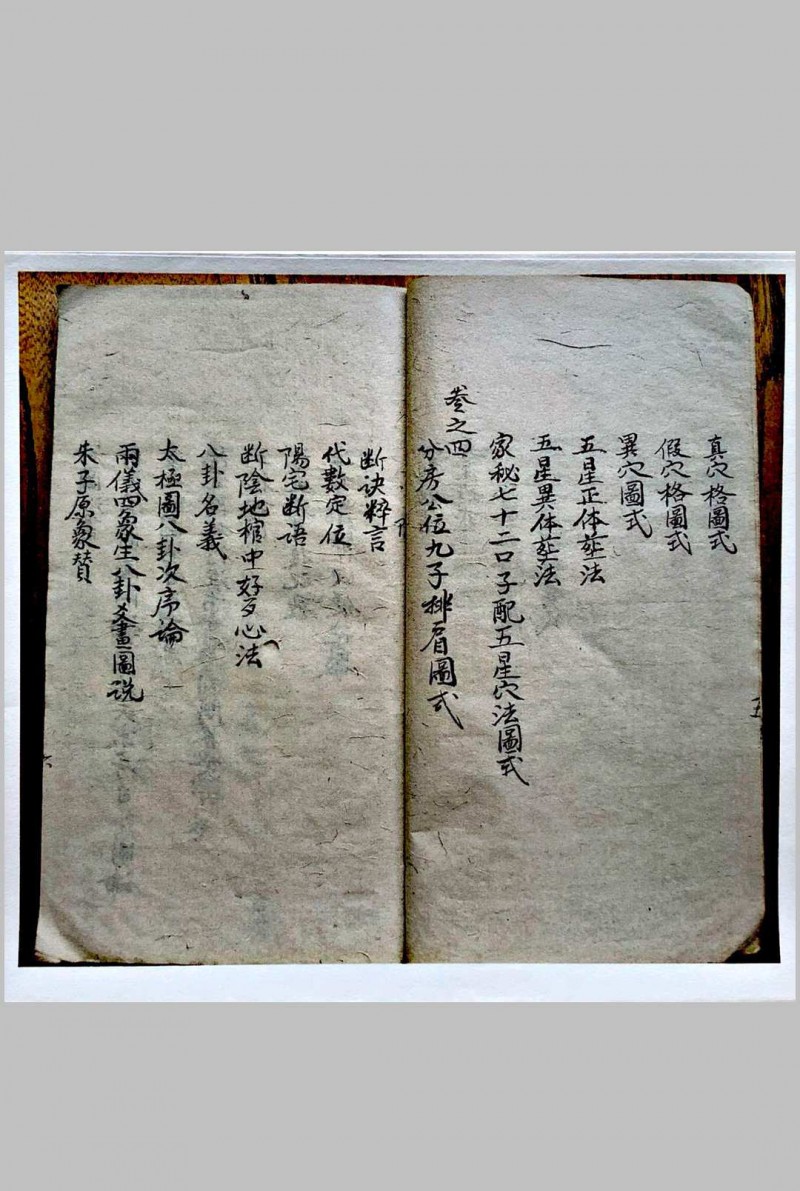 真穴格圖式
假穴格圖式
異穴圖式
五星正体塟法
五星異体塟法
家秘七十二口子配五星穴法圖式
卷之四
分房公位九子排眉圖式
五
断訣粹言
代數定位
陽宅断語
断陰地棺中好歹心法
八卦名義
太極圖八卦次序論
兩儀四象生八卦爻畫圖説
朱子原象賛
六